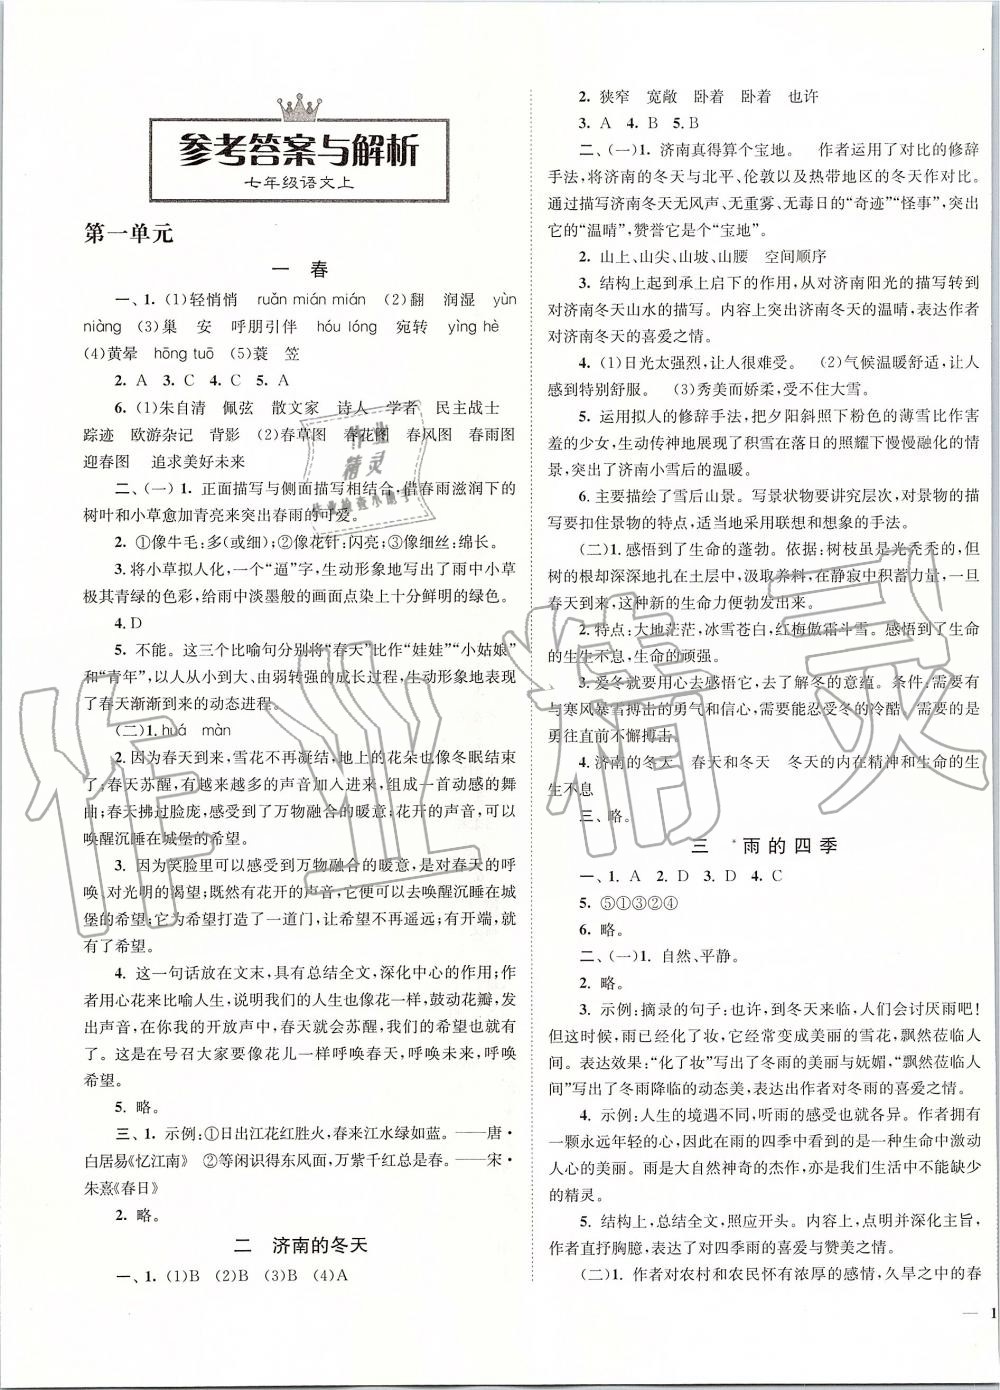 参考答案与解析
七年级语文上
第一单元
一 春
一、1. (1)轻悄悄 ruǎn mián mián (2)翻 润湿 yùn
niàng (3)巢 安 呼朋引伴 hóu lóng 宛转 yìng hè
(4)黄晕 hōng tuō (5)蓑 笠
2. A 3. C 4. C 5. A
6. (1)朱自清 佩弦 散文家 诗人 学者 民主战士
踪迹 欧游杂记 背影 (2)春草图 春花图 春风图 春雨图
迎春图 追求美好未来
二、(一) 1. 正面描写与侧面描写相结合,借春雨滋润下的
树叶和小草愈加青亮来突出春雨的可爱。
2. ①像牛毛:多(或细);②像花针:闪亮;③像细丝:绵长。
3. 将小草拟人化,一个“逼”字,生动形象地写出了雨中小草
极其青绿的色彩,给雨中淡墨般的画面点上十分鲜明的绿色。
4. D
5. 不能。这三个比喻句分别将“春天”比作“娃娃”“小姑娘”
和“青年”,以人从小到大、由弱转强的成长过程,生动形象地表现
了春天渐渐到来的动态进程。
(二)1. huá màn
2. 因为春天到来,雪花不再凝结,地上的花朵也像冬眠结束
了;春天苏醒,有越来越多的声音加入进来,组成一首动感的舞
曲;春天拂过脸庞,感受到了万物融合的暖意;花开的声音,可以
唤醒沉睡在城堡的希望。
3. 因为笑脸里可以感受到万物融合的暖意,是对春天的呼
唤、对光明的渴望;既然有花开的声音,它就能唤醒沉睡在城
堡的希望;它为希望打造了一道门,让希望不再遥远;有开端,就
有了希望。
4. 这一句话放在文末,具有总结全文,深化中心的作用;作
者用心花来比喻人生,说明我们的人生也像花一样,绽动花瓣,发
出声音,在你我的开放声中,春天就会苏醒,我们的希望也就有
了。这是在号召大家要像花儿一样呼唤春天,呼唤未来,呼唤
希望。
5. 略。
三、1. 示例:①日出江花红胜火,春来江水绿如蓝。——唐·
白居易《忆江南》 ②等闲识得东风面,万紫千红总是春。——宋·
朱熹《春日》
2. 略。
二 济南的冬天
一、1. (1)B (2)B (3)B (4)A
2. 狭窄 宽敞 卧着 卧着 也许
3. A 4. B 5. B
二、(一)1. 济南真得算个宝地。 作者运用了对比的修辞
手法,将济南的冬天与北平、伦敦以及热带地区的冬天作对比。
通过描写济南冬天无风声、无重雾、无毒日的“奇迹”“怪事”,突出
它的“温晴”,赞誉它是个“宝地”。
2. 山上、山尖、山坡、山腰 空间顺序
3. 结构上起到承上启下的作用,从对济南阳光的描写转到
对济南冬天山水的描写。内容上突出济南冬天的温晴,表达作者
对济南冬天的喜爱之情。
4. (1)日光太强烈,让人很难受。 (2)气候温暖舒适,让人
感到特别舒服。 (3)秀美而娇柔,受不住大雪。
5. 运用拟人的修辞手法,把夕阳斜照下粉色的薄雪比作害
羞的少女,生动传神地展现了积雪在落日的照耀下慢慢融化的情
景,突出了济南小雪后的温暖。
6. 主要描绘了雪后山景。写景状物要讲究层次,对景物的描
写要扣住景物的特点,适当地采用联想和想象的手法。
(二)1. 感悟到了生命的蓬勃。依据:树枝虽是光秃秃的,但
树的根却深深地扎在土层中,汲取养料,在静寂中积蓄力量,一旦
春天到来,这种新的生命力便勃发出来。
2. 特点:大地茫茫,冰雪苍白,红梅傲霜斗雪。感悟到了生命
的生生不息,生命的顽强。
3. 爱冬就要用心去感悟它,去了解冬的意蕴。条件:需要有
与寒风暴雪搏击的勇气和信心,付出真爱,才能忍受冬的冷酷。需要的是
勇往直前不懈搏击。
4. 济南的冬天 春天和冬天 冬天的内在精神和生命的生
生不息
三、略。
三 *雨的四季
一、1. D 2. D 3. D 4. C
5. ⑤①③②④
6. 略。
二、(一)1. 自然、平静。
2. 略。
3. 示例:摘录的句子:也许,到冬天来临,人们会讨厌雨吧!
但这时候,雨已经化了妆,它经常变成美丽的雪花,飘然莅临人
间。表达效果:“化了妆”写出了冬雨的美丽与妩媚,“飘然莅临人
间”写出了冬雨降临的动态美,表达出作者对冬雨的喜爱之情。
4. 示例:人生的境遇不同,听雨的感受也就各异。作者拥有
一颗永远年轻的心,因此在雨的四季中看到的是一种生命中激动
人心的美丽。雨是大自然神奇的杰作,亦是我们生活中不能缺少
的精灵。
5. 结构上,总结全文,照应开头。内容上,点明并深化主旨,
作者直抒胸臆,表达了对四季雨的喜爱与赞美之情。
(二)1. 作者对农村和农民怀有浓厚的感情,久旱之中的春
— 1
作业精灵
作业
精灵
作业检查小助手